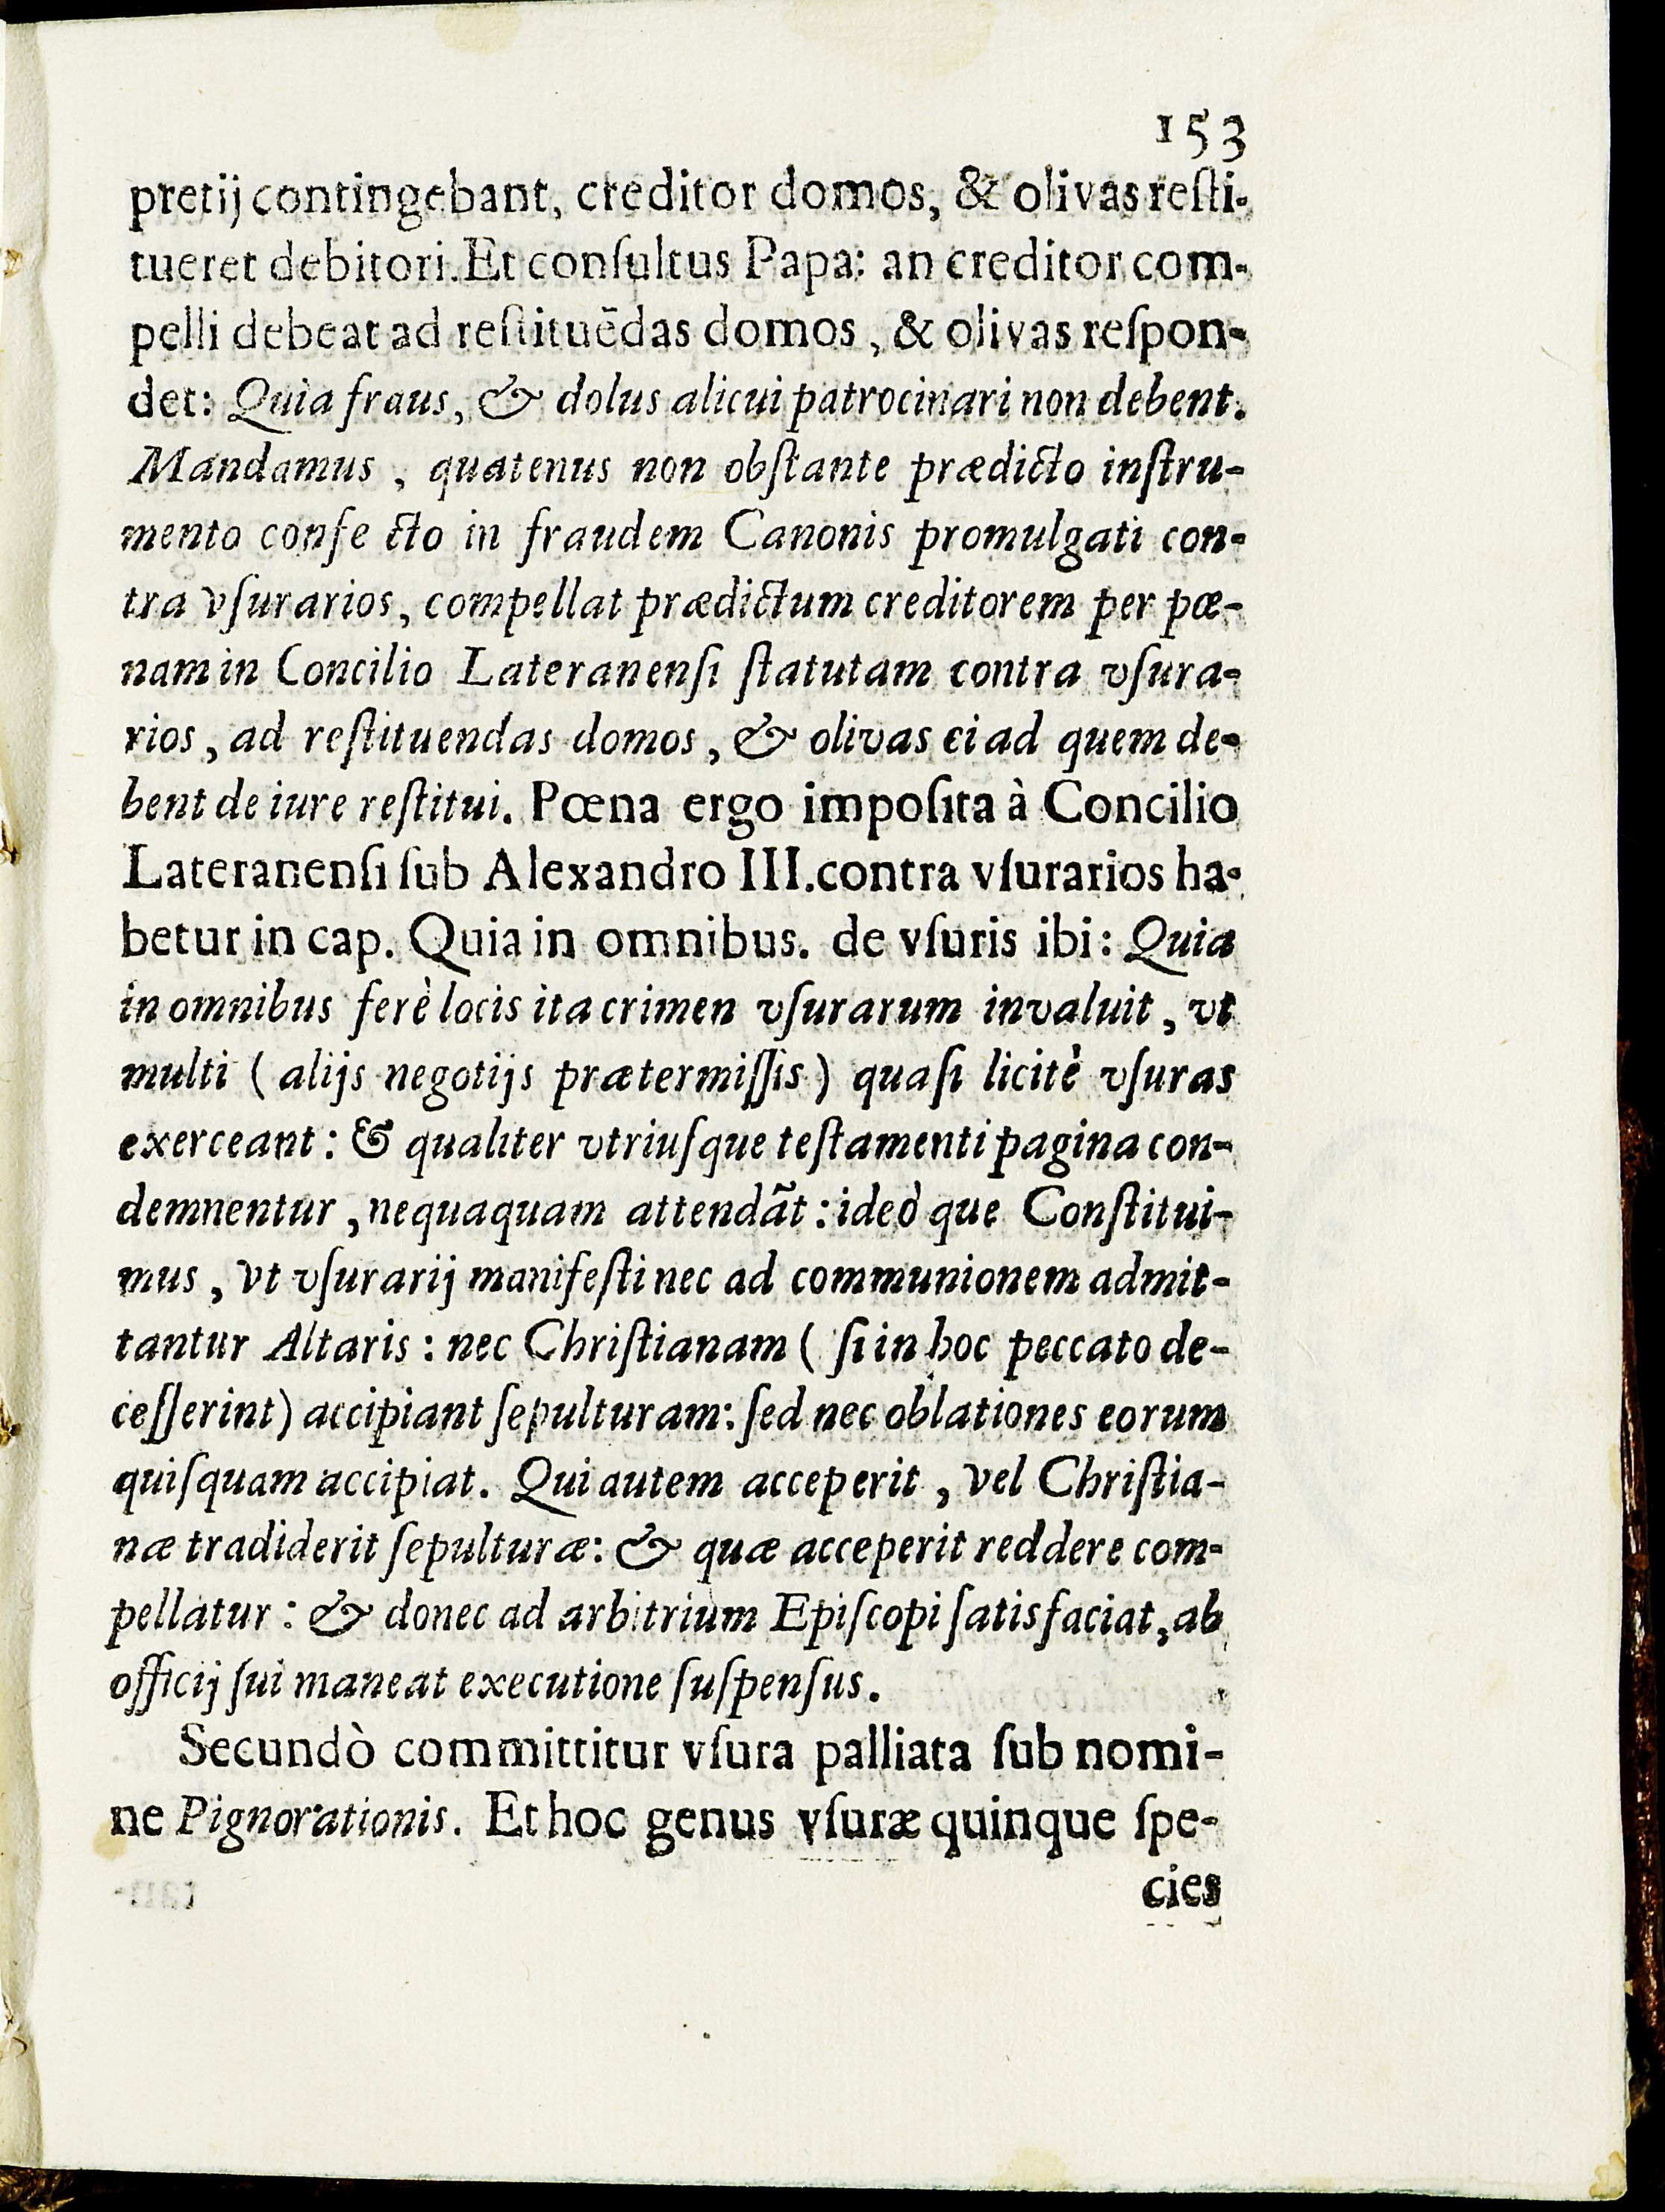 153
pretij contingebant, creditor domos, & olivas reſti-
tueret debitori. Et conſultus Papa: an creditor com-
pelli debeat ad reſtituẽdas domos, & olivas reſpon-
det: Quia fraus, & dolus alicui patrocinari non debent.
Mandamus, quatenus non obſtante prædicto inſtru-
mento confecto in fraudem Canonis promulgati con-
tra vſurarios, compellat prædictum creditorem per pœ-
nam in Concilio Lateranenſi ſtatutam contra vſura-
rios, ad reſtituendas domos, & olivas ei ad quem de-
bent de iure reſtitui. Pœna ergo impoſita à Concilio
Lateranenſi ſub Alexandro III. contra vſurarios ha-
betur in cap. Quia in omnibus. de vſuris ibi: Quia
in omnibus ferè locis ita crimen vſurarum invaluit, vt
multi (alijs negotijs prætermiſſis) quaſi licitè vſuras
exerceant: & qualiter vtriuſque teſtamenti pagina con-
demnentur, nequaquam attendãt: ideò que Conſtitui-
mus, vt vſurarij manifeſti nec ad communionem admit-
tantur Altaris: nec Chriſtianam (ſi in hoc peccato de-
ceſſerint) accipiant ſepulturam: ſed nec oblationes eorum
quiſquam accipiat. Qui autem acceperit, vel Chriſtia-
næ tradiderit ſepulturæ: & quæ acceperit reddere com-
pellatur: & donec ad arbitrium Epiſcopi ſatisfaciat, ab
officij ſui maneat executione ſuſpenſus.
Secundò committitur vſura palliata ſub nomi-
ne Pignorationis. Et hoc genus vſuræ quinque ſpe-
cies